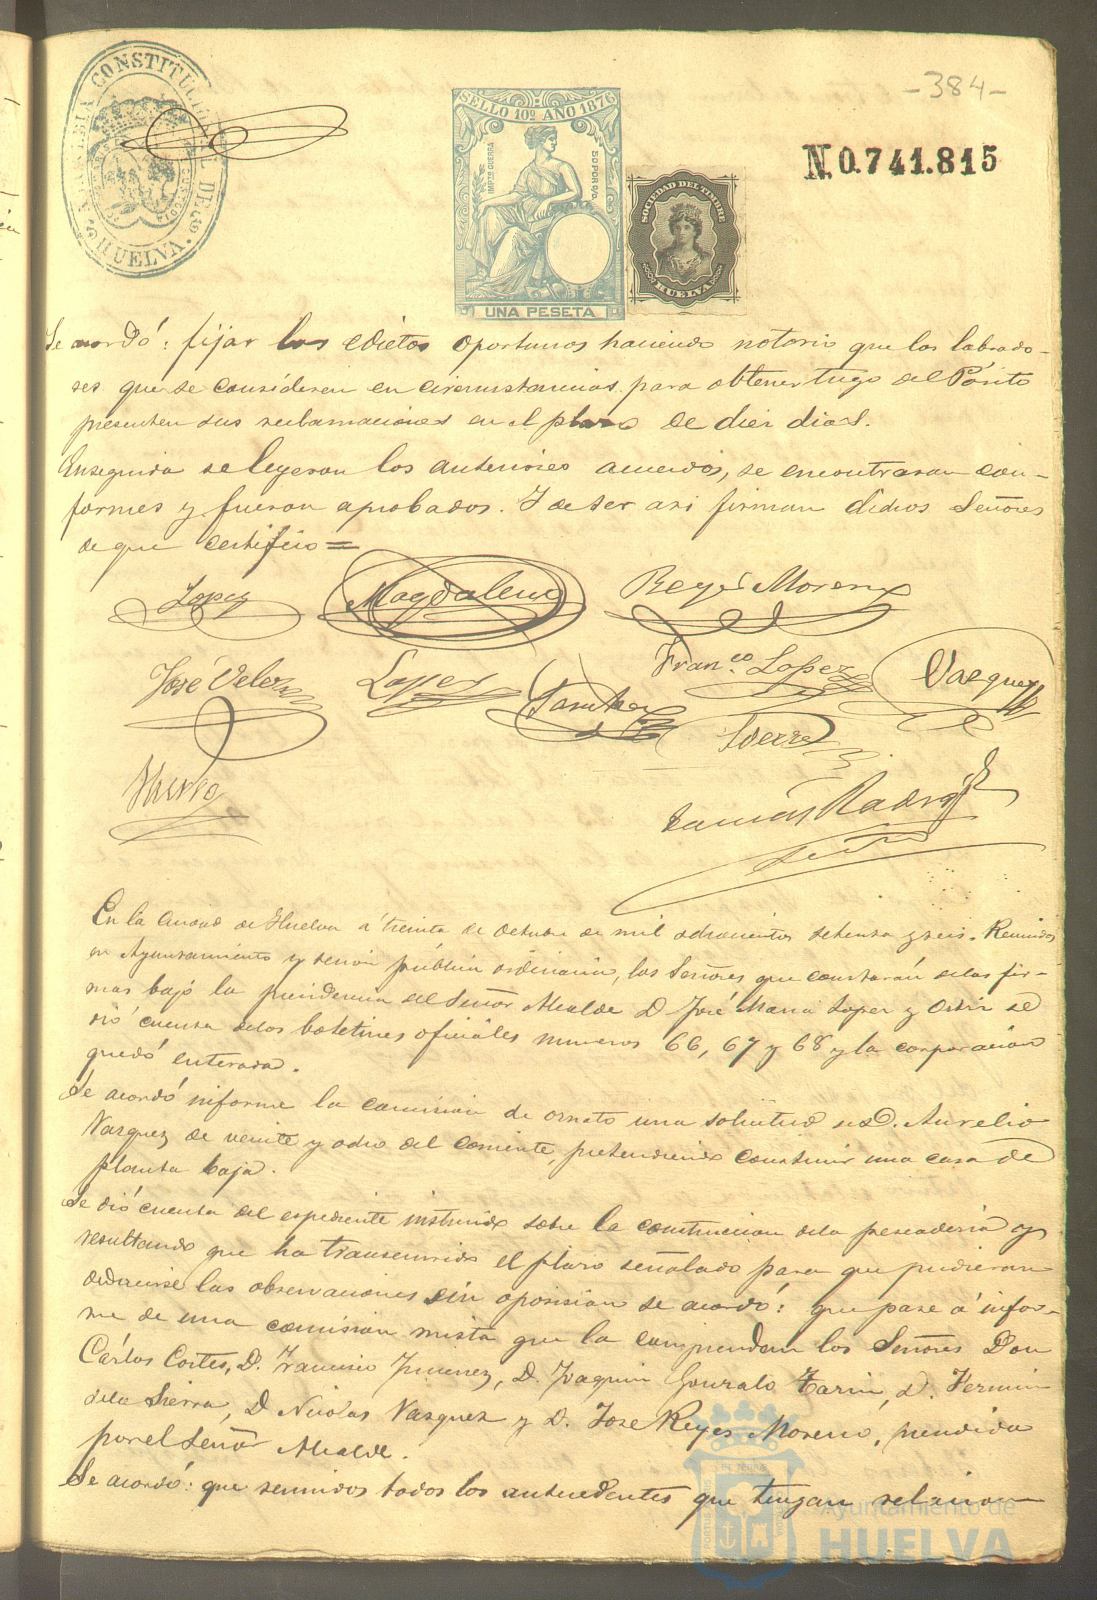 -384-
ALCALDIA CONSTITUCIONAL DE HUELVA
SELLO 10º AÑO 1876
IMPTO GUERRA
50 POR 0/0
UNA PESETA
SOCIEDAD DEL TIMBRE
HUELVA
N.0.741.815
Se acordó: fijar los edictos oportunos haciendo notorio que los labrado-
res que se consideren en circunstancias para obtener trigo del Pósito
presenten sus reclamaciones en el plazo de diez dias.
Enseguida se leyeron los anteriores acuerdos, se encontraron con-
formes y fueron aprobados. Y de ser asi firman dichos Señores
de que certifico=
Lopez Magdalena Reyes Moreno
José Velez Lopez Sanchez Franco. Lopez Vazquez
Tomás Rodrig
En la Ciudad de Huelva á treinta de Octubre de mil ochocientos setenta y seis. Reunidos
en Ayuntamiento y sesion pública ordinaria, los Señores que constarán de las fir-
mas bajo la presidencia del Señor Alcalde D José Maria Lopez y Ortiz se
dió cuenta de los boletines oficiales numeros 66, 67 y 68 y la corporacion
quedó enterada.
Se acordó informe la comision de ornato una solicitud de D. Aurelio
Vazquez de veinte y ocho del corriente, pretendiendo construir una casa de
planta baja.
Se dió cuenta del espediente instruido sobre la construccion de la pescadería y
resultando que ha transcurrido el plazo señalado para que pudieran
deducirse las observaciones sin oposicion se acordó: que pase á infor-
me de una comision mista que la comprendan los Señores Don
Cárlos Cortes, D. Francisco Jimenez, D. Joaquin Gonzalo Tarin, D. Fermin
de la Sierra, D Nicolas Vazquez y D. Jose Reyes Moreno, presidida
por el Señor Alcalde.
Se acordó: que reunidos todos los antecedentes que tengan relacion
Ayuntamiento de
HUELVA